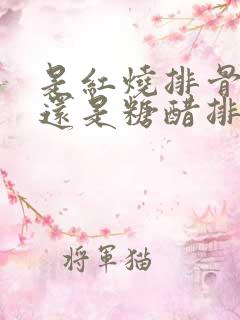 是紅燒排骨
還是糖醋排
將軍猫